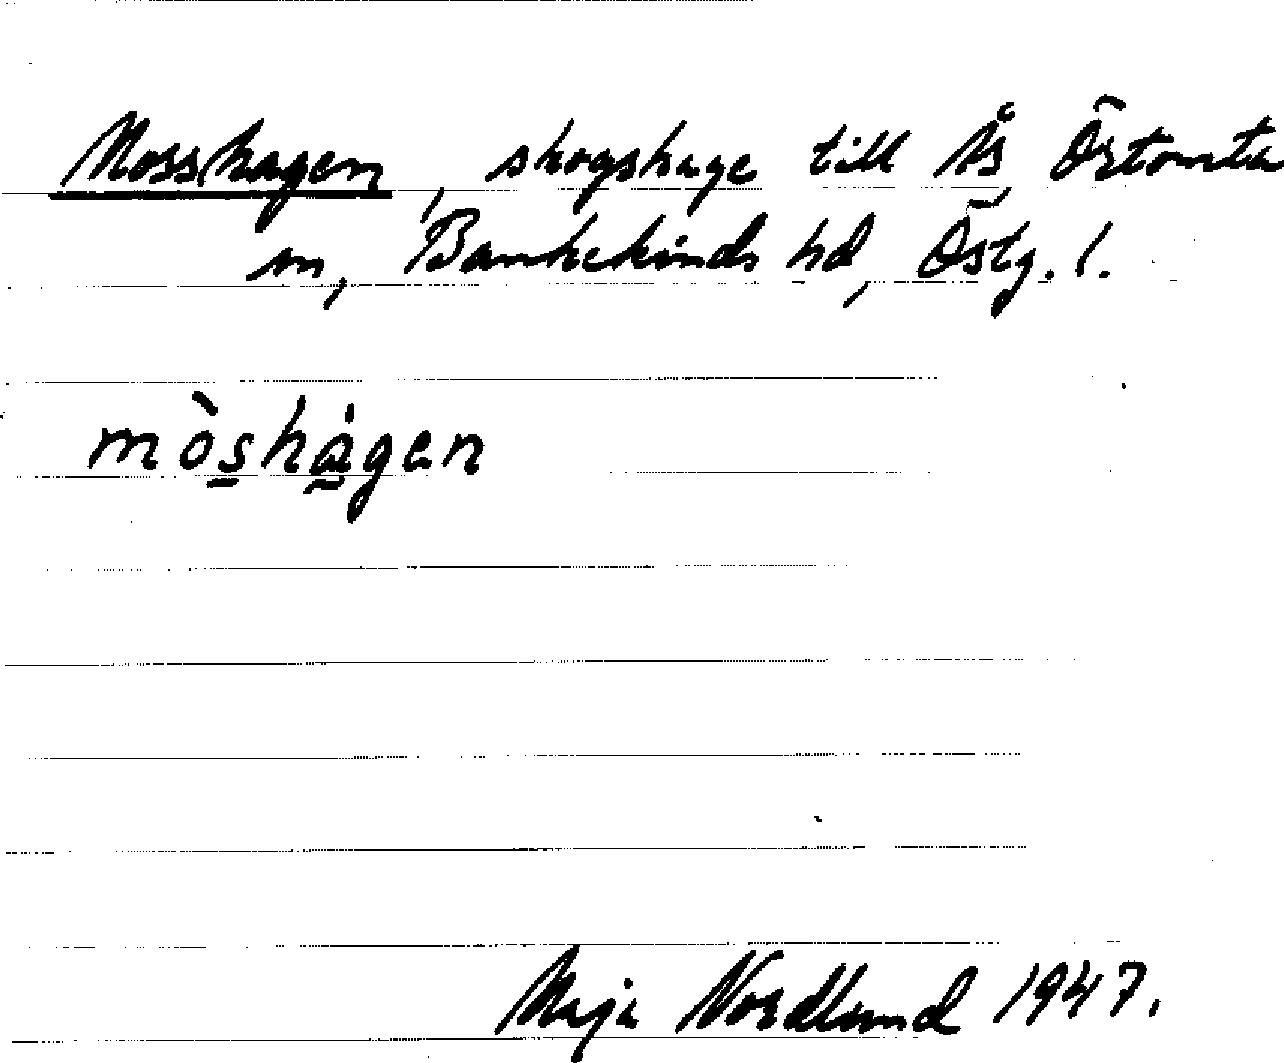 Mosshagen, skogshage till Ås, Örtomta
sn, Bankekinds hd, Östg. l.
mòs̲hȧ̲gen
Maja Nordlund 1947.